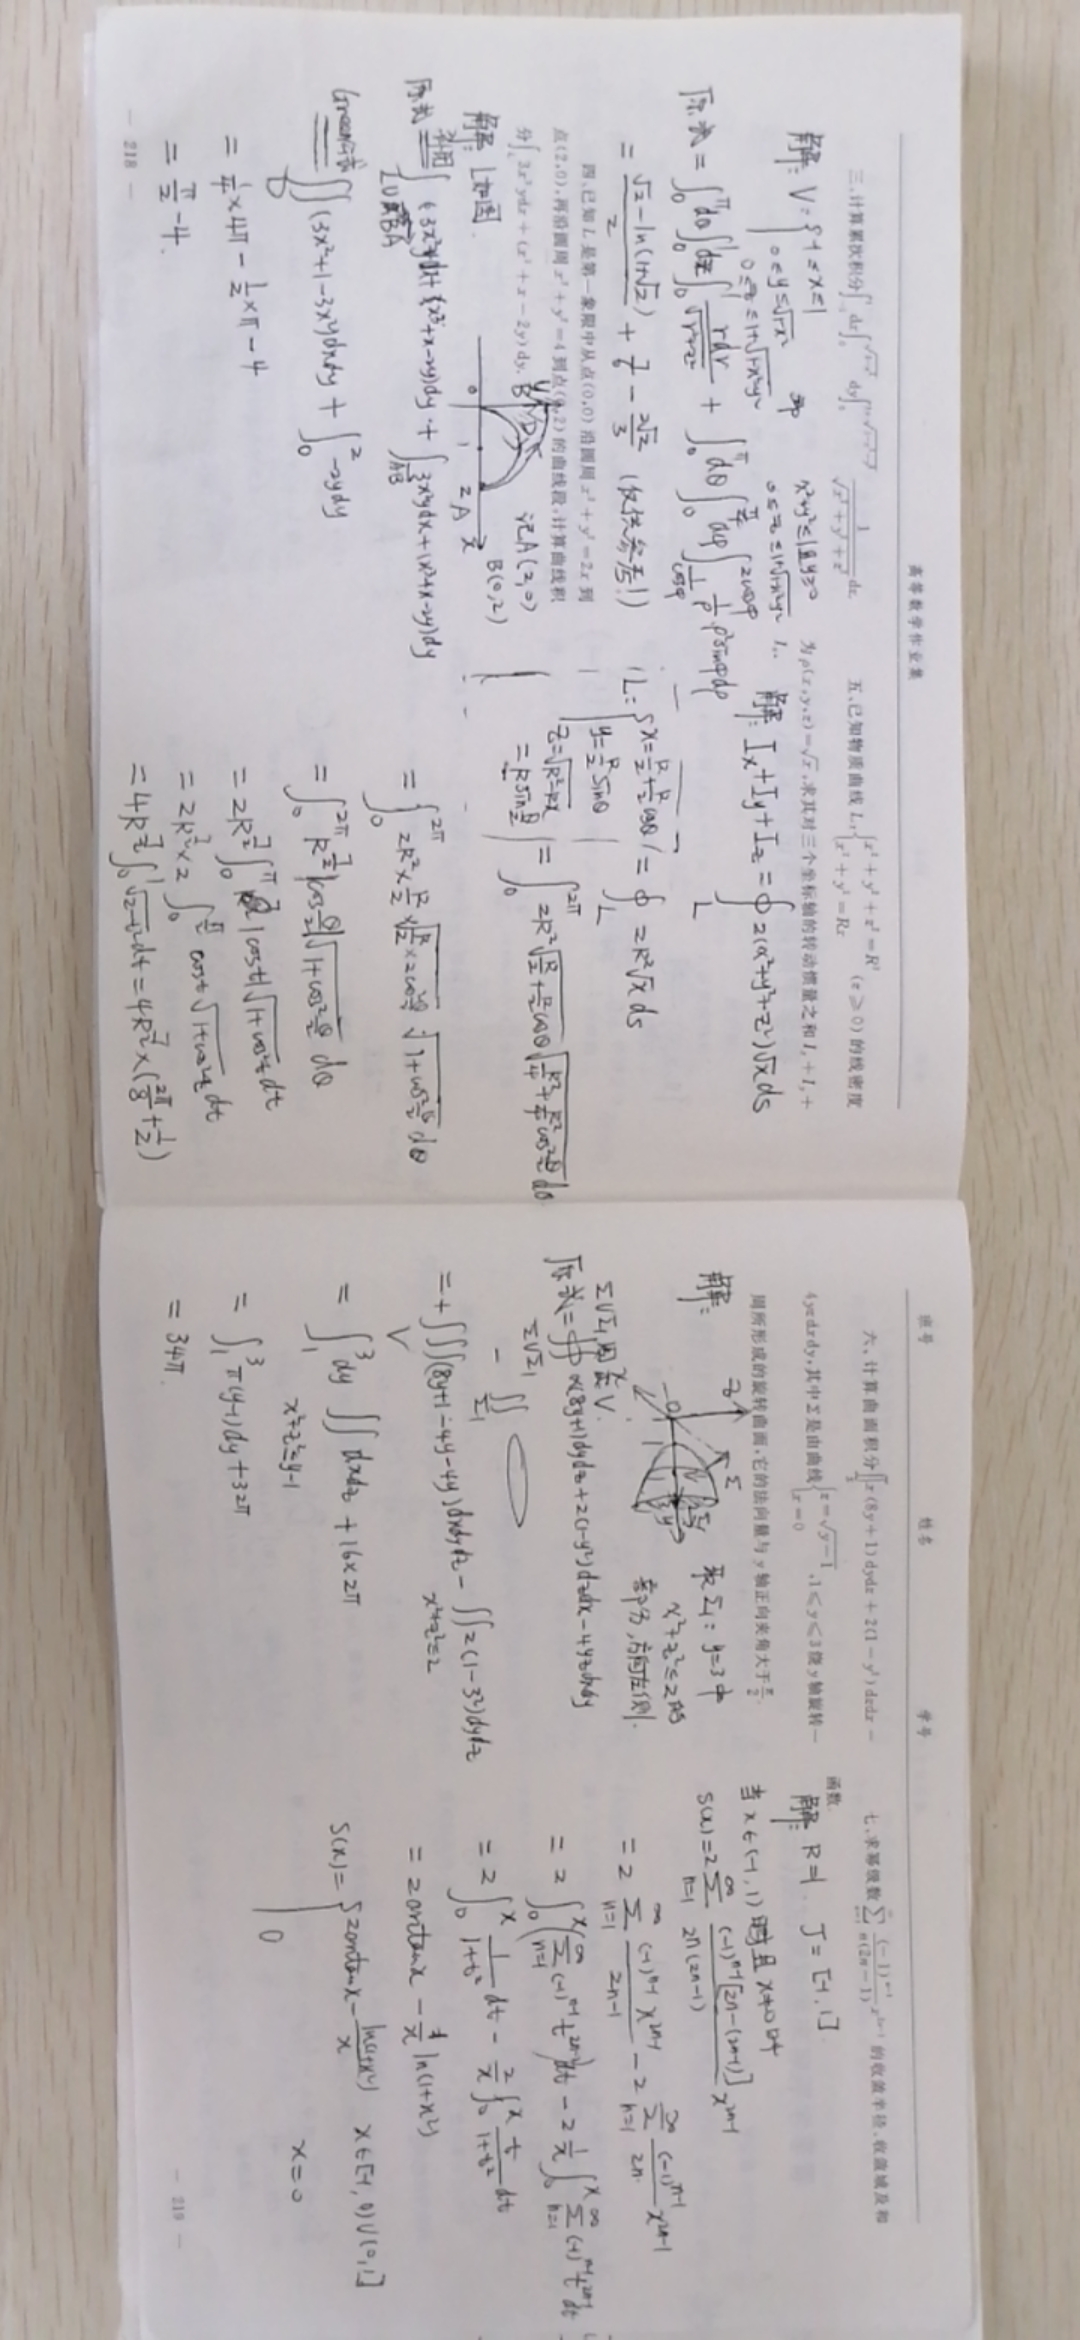 高等数学作业集
三、计算累次积分∫_{-1}^{1}dx∫_{0}^{√(1-x²)}dy∫_{0}^{1+√(1-x²-y²)} 1/√(x²+y²+z²) dz.
解: V: { -1≤x≤1 即 x²+y²≤1且y≥0
0≤y≤√(1-x²) 0≤z≤1+√(1-x²-y²)
0≤z≤1+√(1-x²-y²)
原式 = ∫_0^π dθ∫_0^1 dz∫_0^1 rdr/√(r²+z²) + ∫_0^π dθ∫_0^{π/4} dφ∫_{1/cosφ}^{2cosφ} 1/ρ ρ²sinφdρ
= (√2-ln(1+√2))/2 + 7/6 - 2√2/3 (仅供参考!)
四、已知L是第一象限中从点(0,0)沿圆周x²+y²=2x到
点(2,0),再沿圆周x²+y²=4到点(0,2)的曲线段,计算曲线积
分∫_L 3x²ydx+(x³+x-2y)dy.
y B D 0 1 2 A x
记A(2,0)
B(0,2)
解: L如图.
补图
Green公式 ∬_D (3x²+1-3x²)dxdy + ∫_0^2 -2ydy
= 1/4×4π - 1/2×π - 4
= π/2 - 4.
— 218 —
五、已知物质曲线L:{ x²+y²+z²=R² (z≥0)的线密度
x²+y²=Rx
为ρ(x,y,z)=√x,求其对三个坐标轴的转动惯量之和I_x+I_y+
I_z.
解: I_x+I_y+I_z = ∮_L 2(x²+y²+z²)√x ds
L: { x=R/2+R/2 cosθ = ∮_L 2R²√x ds
y=R/2 sinθ
z=√(R²-Rx) = ∫_0^{2π} 2R²√(R/2+R/2 cosθ) √(R²/4+R²/4 cos²θ/2) dθ
=R sin θ/2
= ∫_0^{2π} R^{7/2}|cos θ/2|√(1+cos²θ/2) dθ
= 2R^{7/2}∫_0^π |cost|√(1+cos²t) dt
= 2R^{7/2}×2∫_0^{π/2} cost√(1+cos²t) dt
= 4R^{7/2}∫_0^1 √(2-t²)dt = 4R^{7/2}×(2π/8+1/2)
班号 姓名 学号
六、计算曲面积分∬_Σ x(8y+1)dydz+2(1-y²)dzdx-
4yzdxdy,其中Σ是由曲线{ z=√(y-1) ,1≤y≤3绕y轴旋转一
x=0
周所形成的旋转曲面,它的法向量与y轴正向夹角大于π/2.
解:
z Σ Σ₁ 0 1 3 y x
取Σ₁: y=3中
x²+z²≤2的
部分,方向左侧.
Σ∪Σ₁围成V.
原式 = ∯_{Σ∪Σ₁} x(8y+1)dydz+2(1-y²)dzdx-4yzdxdy
- ∬_{Σ₁}
= +∭_V (8y+1-4y-4y)dxdydz - ∬_{x²+z²≤2} 2(1-3²)dydz
= ∫_1^3 dy ∬_{x²+z²≤y-1} dxdz + 16×2π
= ∫_1^3 π(y-1)dy+32π
= 34π.
七、求幂级数∑_{n=1}^∞ (-1)^{n-1}/(n(2n-1)) x^{2n-1}的收敛半径、收敛域及和
函数.
解: R=1 J=[-1,1].
当x∈(-1,1)时且x≠0时
S(x)=2∑_{n=1}^∞ (-1)^{n-1}[2n-(2n-1)]/(2n(2n-1)) x^{2n-1}
= 2∑_{n=1}^∞ (-1)^{n-1}x^{2n-1}/(2n-1) - 2∑_{n=1}^∞ (-1)^{n-1}/2n x^{2n-1}
= 2∫_0^x 1/(1+t²) dt - 2/x ∫_0^x t/(1+t²) dt
= 2arctanx - 1/x ln(1+x²)
S(x)= { 2arctanx - ln(1+x²)/x x∈[-1,0)∪(0,1]
0 x=0
— 219 —